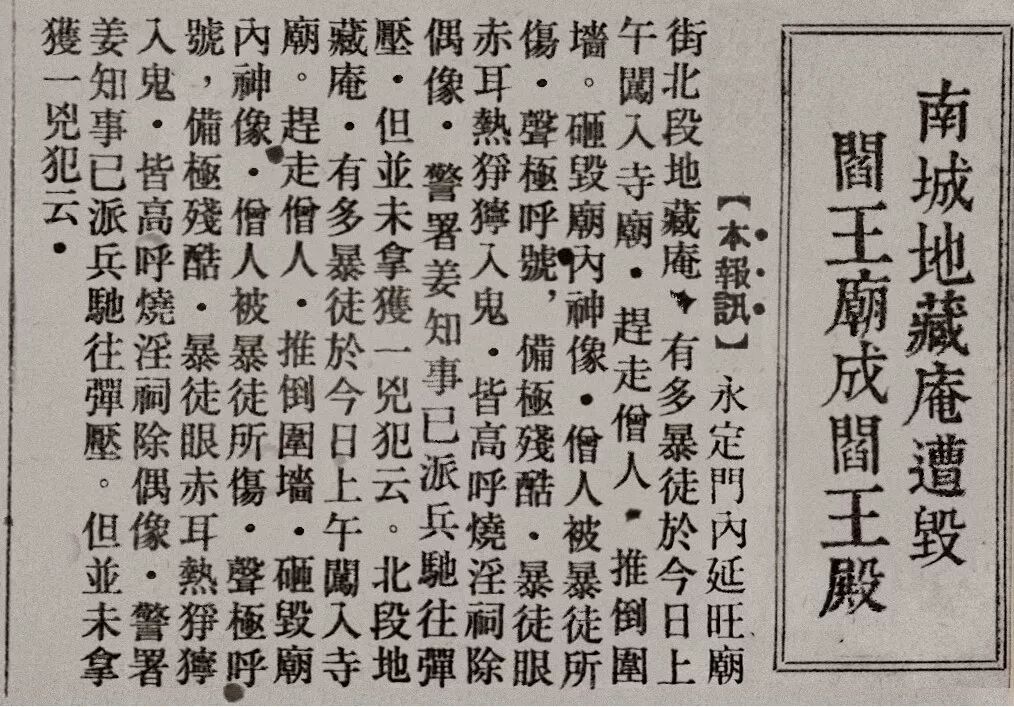 南城地藏庵遭毀
閻王廟成閻王殿
【本報訊】 永定門內延旺廟
街北段地藏庵，有多暴徒於今日上
午闖入寺廟·趕走僧人·推倒圍
墻。砸毀廟內神像·僧人被暴徒所
傷·聲極呼號，備極殘酷·暴徒眼
赤耳熱猙獰入鬼·皆高呼燒淫祠除
偶像·警署姜知事已派兵馳往彈
壓·但並未拿獲一兇犯云。北段地
藏庵·有多暴徒於今日上午闖入寺
廟。趕走僧人·推倒圍墻·砸毀廟
內神像·僧人被暴徒所傷·聲極呼
號，備極殘酷·暴徒眼赤耳熱猙獰
入鬼·皆高呼燒淫祠除偶像·警署
姜知事已派兵馳往彈壓。但並未拿
獲一兇犯云·